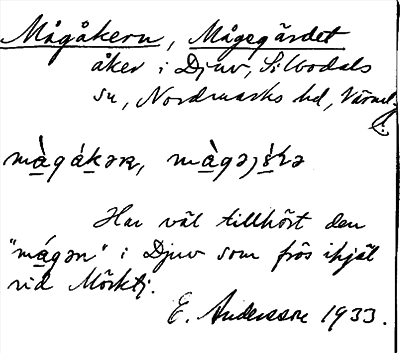 Mågåkern, Mågegärdet
åker i Djuv, Silbodals
sn, Nordmarks hd, Värml.
l.
Har väl tillhört den
"mágən" i Djuv som frös ihjäl
vid Mörktj.
E. Andersson 1933.